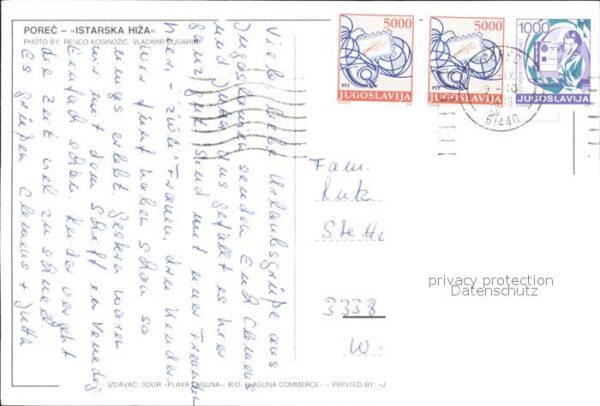 POREČ – »ISTARSKA HIŽA«
PHOTO BY: RENCO KOSINOŽIĆ, VLADIMIR BUGARIN
5000
PTT
JUGOSLAVIJA
5000
PTT
JUGOSLAVIJA
1000
JUGOSLAVIJA
51440
Viele liebe Urlaubsgrüße aus
Jugoslawien senden Euch Clemens
und Jutta. Uns gefällt es hier
ganz gut sind mit einer Freundin
hier
wir fünf haben schon so
einiges erlebt. Gestern waren
wir mit dem Schiff in Venedig
einfach schön. Leider vergeht
die Zeit viel zu schnell
Es grüßen Clemens + Jutta
Fam.
3338
W.
privacy protection
Datenschutz
IZDAVAČ: SOUR »PLAVA LAGUNA«, R.O. »LAGUNA COMMERCE« – PRINTED BY: »J